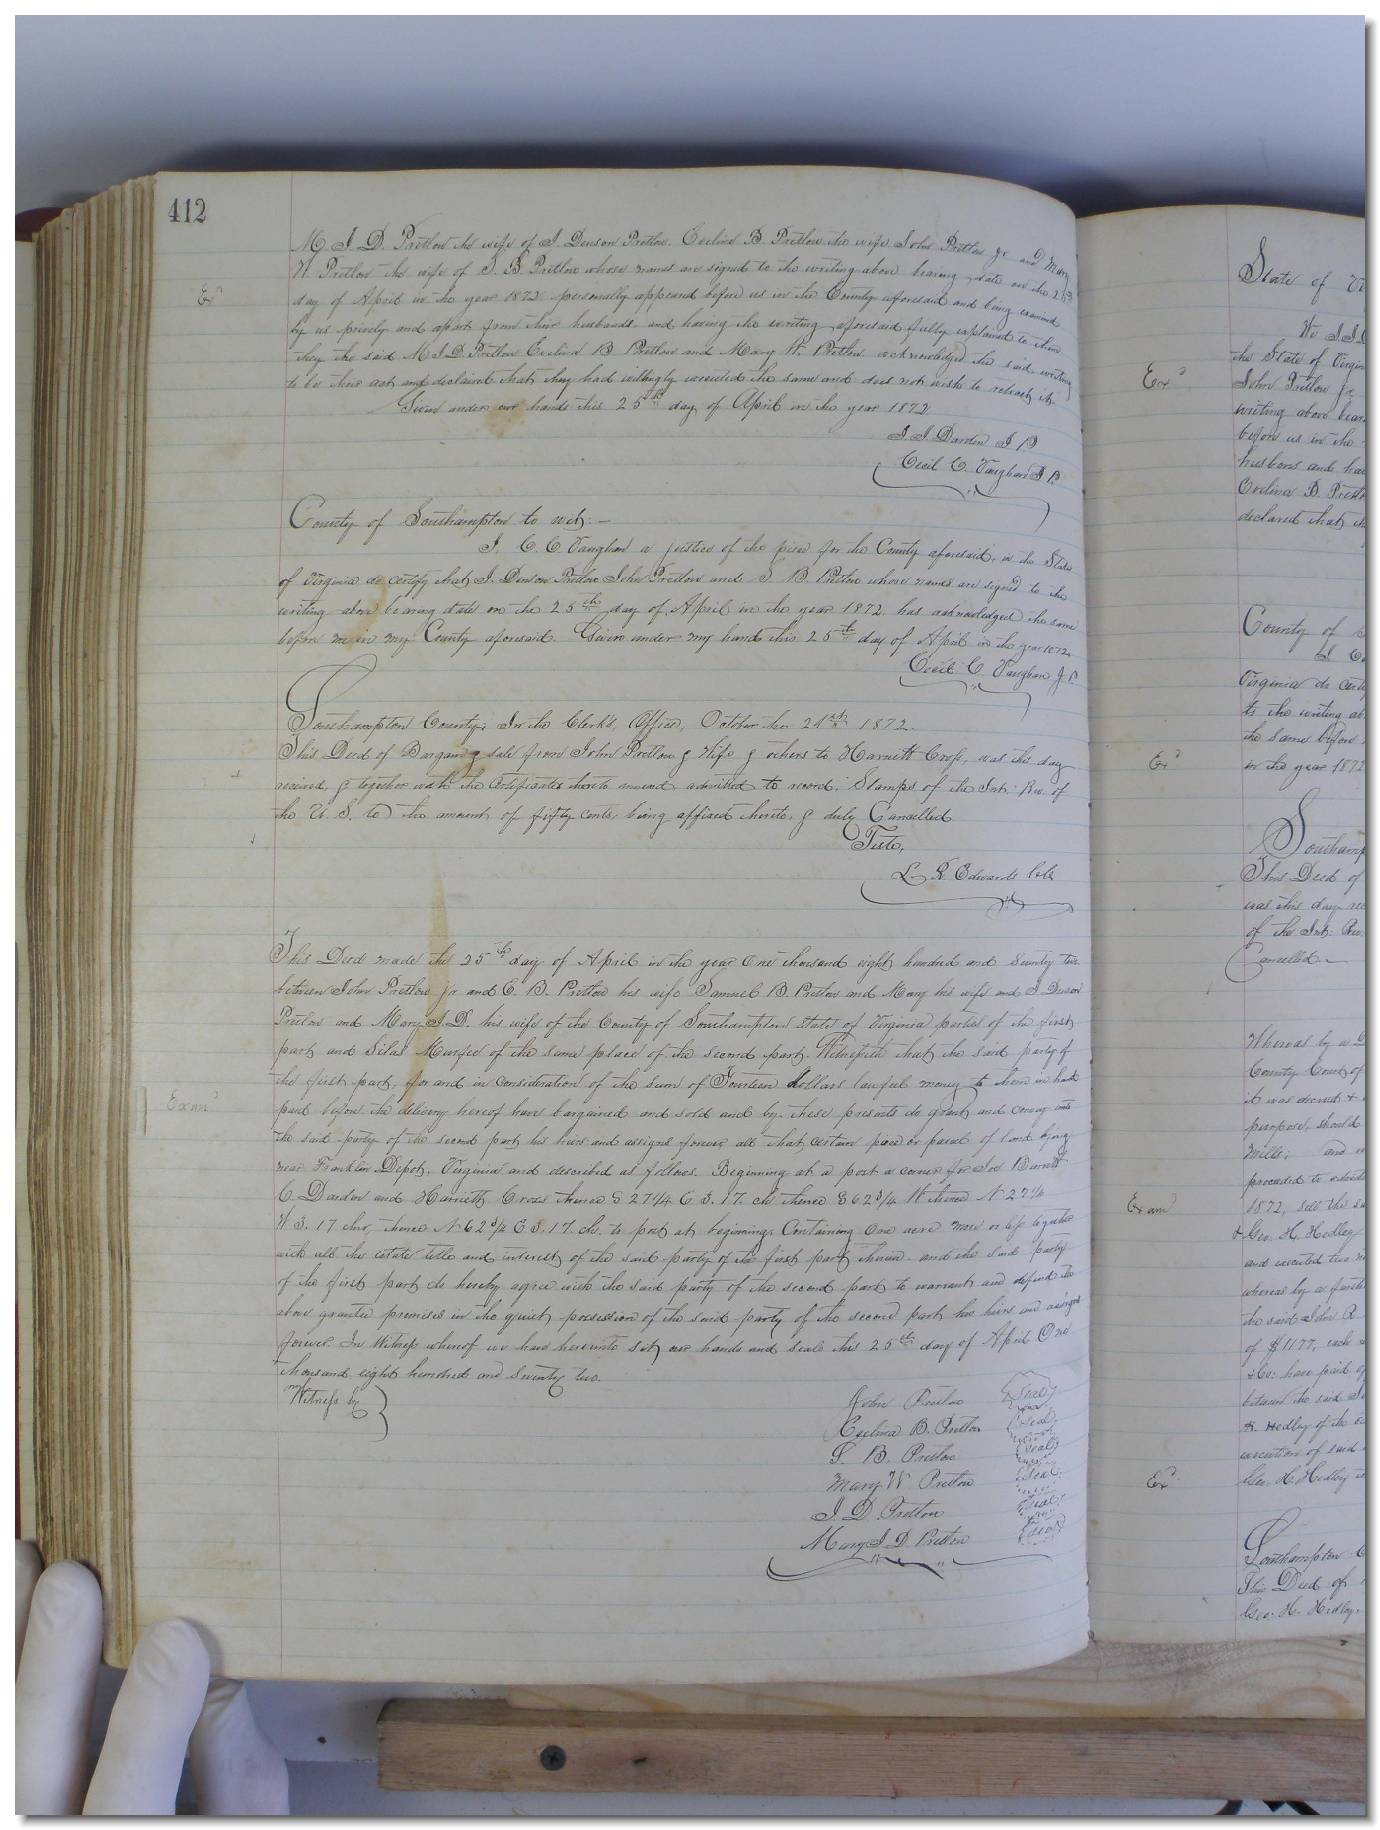 412
M. J. D. Pretlow the wife of J Denson Pretlow. Evelina B. Pretlow the wife John Pretlow Jr and Mary
W. Pretlow the wife of S. B Pretlow whose names are signed to the writing above bearing date on the 25th
Exd
day of April in the year 1872 personally appeared before us in the County aforesaid and being examined
by us privily and apart from their husbands, and having the writing aforesaid fully explained to them
they the said M J D. Pretlow Evelina B Pretlow and Mary W. Pretlow acknowledged the said writing
to be their act and declared that they had willingly executed the same and does not wish to retract it.
Given under our hands this 25th day of April in the year 1872.
J. J. Darden J P.
Cecil C. Vaughan J P.
County of Southampton to wit: —
I. C. C. Vaughan a justice of the piece for the County aforesaid, in the State
of Virginia do certify that J. Denson Pretlow John Pretlow and S. B. Pretlow whose names are signed to the
writing above bearing date on the 25th day of April in the year 1872, has acknowledged the same
before me in my County aforesaid. Given under my hand this 25th day of April in the year 1872.
Cecil C. Vaughan J. P.
Southampton County; In the Clerk's Office, October the 24th 1872.
This Deed of Bargain & sale from John Pretlow & Wife & others to Harriett Cross, was this day
received, & together with the Certificates thereto annexed, admitted to record. Stamps of the Int: Rev. of
the U. S. to the amount of fifty cents, being affixed thereto, & duly Cancelled
Teste,
L. R. Edwards Clk
This Deed made the 25th day of April in the year One thousand eight hundred and Seventy two
between John Pretlow Jr and E. B. Pretlow his wife Samuel B. Pretlow and Mary his wife and J Denson
Pretlow and Mary J. D. his wife of the County of Southampton State of Virginia parties of the first
part and Silas Murfee of the same place of the second part. Witnesseth that the said party of
the first part, for and in consideration of the sum of Fourteen dollars lawful money to them in hand
Examd
paid before the delivery hereof have bargained and sold and by these presents do grant and convey unto
the said party of the second part his heirs and assigns forever all that certain piece or parcel of land lying
near Franklin Depot, Virginia and described as follows. Beginning at a post a corner for Joe Barrett
C. Darden and Harriett Cross thence S 27 1/4 E 3.17. chs thence S 62 3/4 W thence N 27 1/4
W 3.17 chs, thence N 62 3/4 E 3.17. chs to post at beginning. Containing One acre more or less together
with all the estate title and interest of the said party of the first part therein. and the said party
of the first part do hereby agree with the said party of the second part to warrant and defend the
above granted premises in the quiet possession of the said party of the second part his heirs and assigns
forever. In Witness whereof we have hereunto set our hands and seals this 25th day of April One
thousand eight hundred and Seventy two.
Witness by
John Pretlow Seal
Evelina B. Pretlow Seal
S. B. Pretlow Seal
Mary W Pretlow Seal
J. D. Pretlow Seal
Mary J D Pretlow Seal
State of Vi
We J. J. D
the State of Virgin
Exd
John Pretlow Jr
writing above bear
before us in the
husbans and ha
Evelina B. Pretl
declared that th
County of S
I. C.
Virginia do certi
to the writing ab
the same before
Exd
in the year 1872
Southamp
This Deed of
was this day rec
of the Int: Rev.
Cancelled —
Whereas by a D
County Court of
it was decreed &
purpose, should
Mills; and w
proceeded to
Examd
1872, sell the s
& Geo. H. Hedley
and executed two
whereas by a furth
the said John R.
of $1177, each
& Co: have paid
between the said
H Hedley of the
execution of said
Exd
Geo. H. Hedley
Southampton C
This Deed of
Geo. H. Hedley.